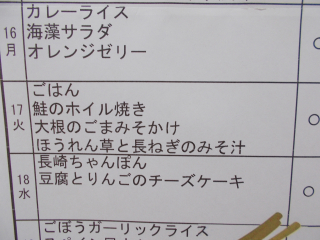 16
月
カレーライス
海藻サラダ
オレンジゼリー
17
火
ごはん
鮭のホイル焼き
大根のごまみそかけ
ほうれん草と長ねぎのみそ汁
18
水
長崎ちゃんぽん
豆腐とりんごのチーズケーキ
ごぼうガーリックライス